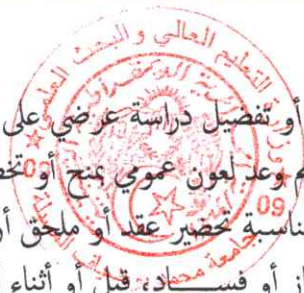 التعليم العالي و البحث العلمي
أو تفصيل دراسة عرضي على
وعد لعون عمومي بمنح أو تخص
ناسبة تحضير عقد أو ملحق أو
از أو فساد، قبل أو أثناء
09
جامعة محمد